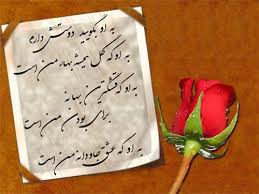 به او بگویید دوستش دارم
به او که گل همیشه بهار من است
به او که قشنگترین بهانه
برای بودن من است
به او که عشق جاودانه من است